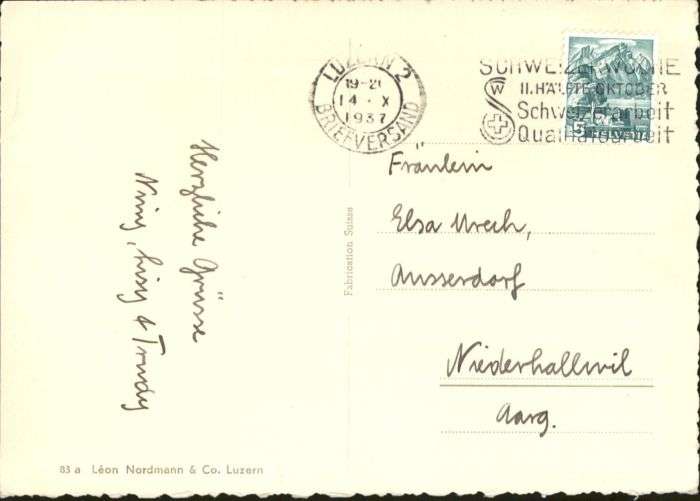 LUZERN 2
19-21
14 · X
1937
BRIEFVERSAND
SCHWEIZER WOCHE
II. HÄLFTE OKTOBER
Schweizerarbeit
Qualitätsarbeit
5 HELVETIA
Herzliche Grüsse
Niny, Lisy & Trudy
Fabrication Suisse
Fräulein
Elsa Urech,
Ausserdorf
Niederhallwil
Aarg.
83 a Léon Nordmann & Co. Luzern